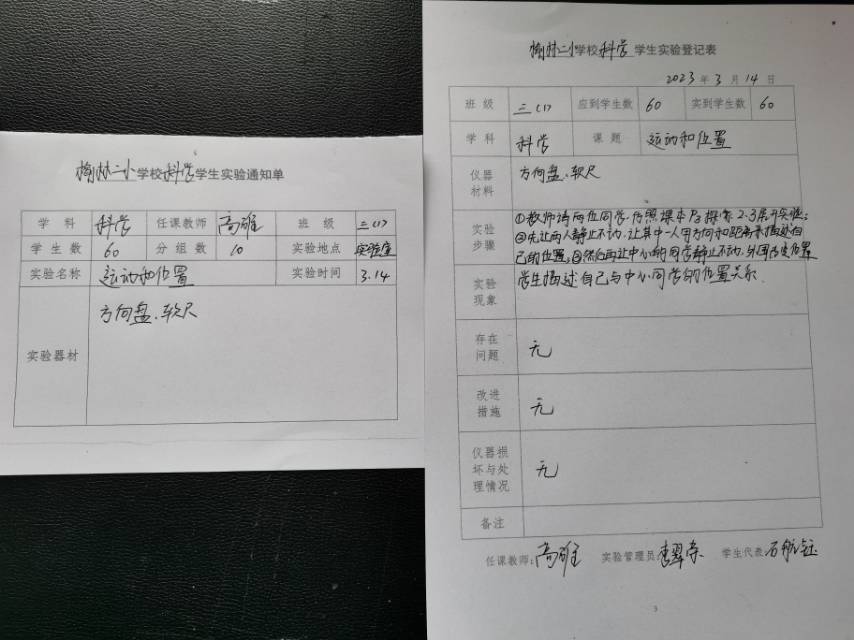 榆林二小学校科学学生实验通知单
学 科 科学 任课教师 高雄 班 级 三(1)
学 生 数 60 分 组 数 10 实验地点 实验室
实验名称 运动和位置 实验时间 3.14
实验器材 方向盘、软尺
榆林二小学校科学学生实验登记表
2023 年 3 月 14 日
班 级 三(1) 应到学生数 60 实到学生数 60
学 科 科学 课 题 运动和位置
仪器
材料
方向盘、软尺
实验
步骤
①教师请两位同学,仿照课本
2.3展开实验;
②先让两人静止不动,让其中一人用方向和距离来描述自
己的位置,③然后再让中心的同学静止不动,
位置
实验
现象
学生描述自己与中心同学的位置关系.
存在
问题
无
改进
措施
无
仪器损
坏与处
理情况
无
备注
任课教师:高雄 实验管理员: 学生代表:
3